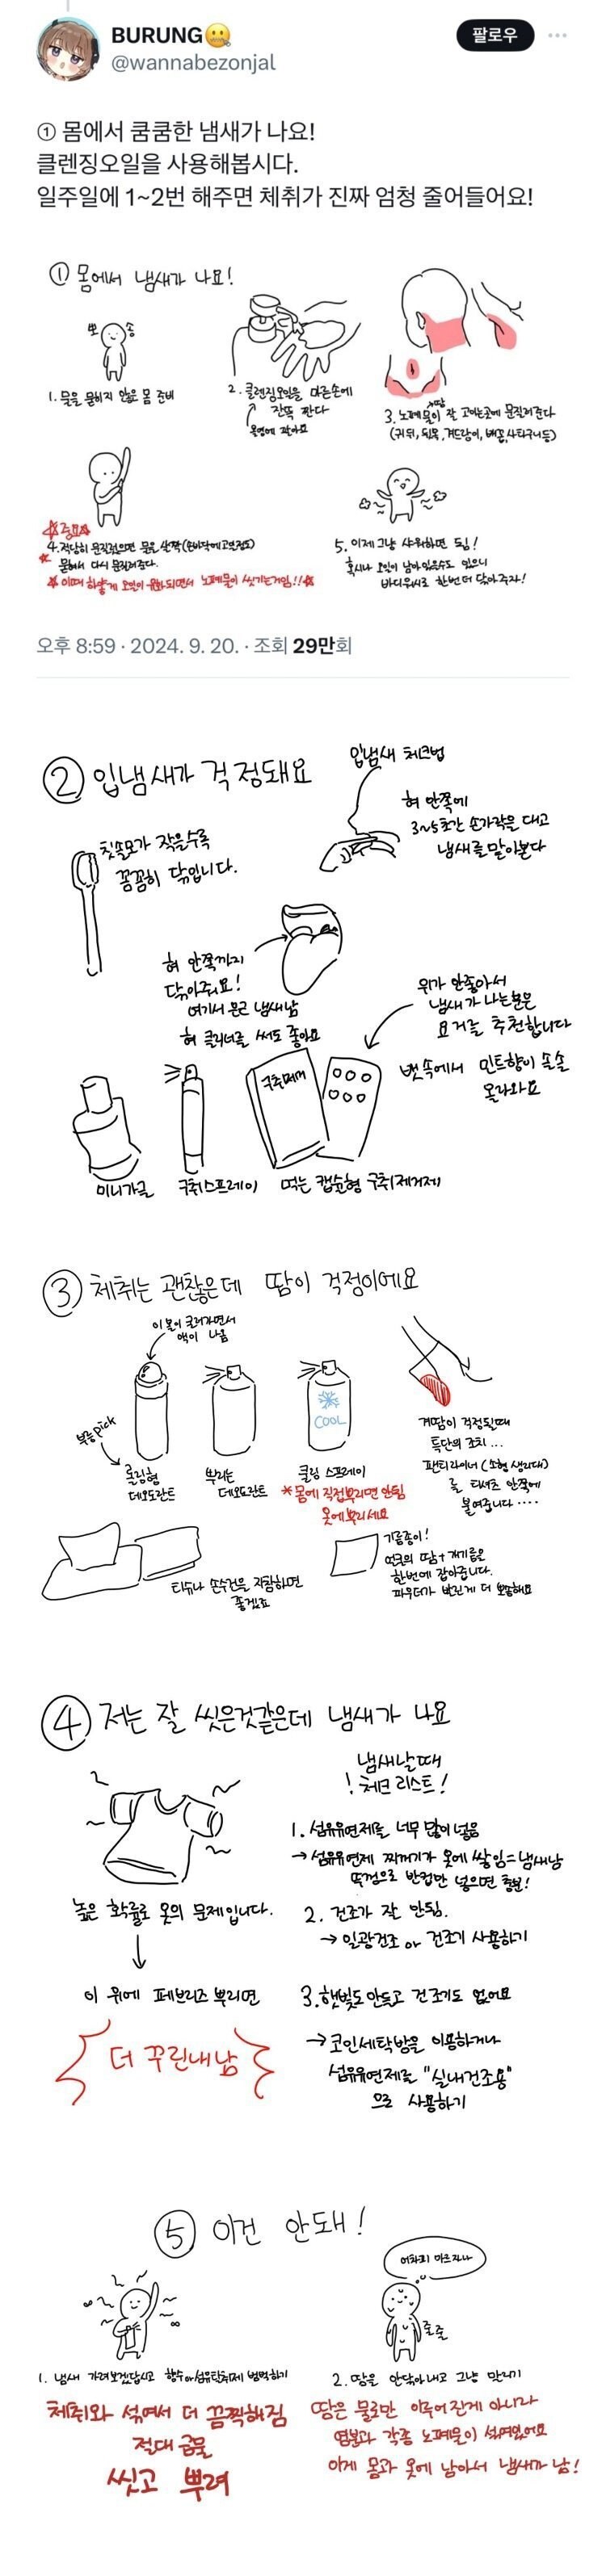 BURUNG
@wannabezonjal
팔로우
① 몸에서 쿰쿰한 냄새가 나요!
클렌징오일을 사용해봅시다.
일주일에 1~2번 해주면 체취가 진짜 엄청 줄어들어요!
① 몸에서 냄새가 나요!
뽀 송
1. 물을 묻히지 않은 몸 준비
2. 클렌징오일을 마른손에
잔뜩 짠다
3. 노폐물이 잘 고이는곳에 문질러준다
(귀 뒤, 뒷목, 겨드랑이, 배꼽, 사타구니 등)
☆중요☆
4. 적당히 문질렀으면 물을 살짝(손바닥에 고인정도)
묻혀서 다시 문질러준다.
☆ 이때 하얗게 오일이 유화되면서 노폐물이 씻기는거임!!☆
5. 이제 그냥 샤워하면 됨!
혹시나 오일이 남아있을수도 있으니
바디워시로 한번 더 닦아주자!
오후 8:59 · 2024. 9. 20. · 조회 29만회
② 입냄새가 걱정돼요
입냄새 체크법
혀 안쪽에
3~5초간 손가락을 대고
냄새를 맡아본다
칫솔모가 작을수록
꼼꼼히 닦입니다.
혀 안쪽까지
닦아주세요!
여기서 은근 냄새남
혀 클리너를 써도 좋아요
위가 안좋아서
냄새가 나는분은
요거를 추천합니다
뱃속에서 민트향이 솔솔
올라와요
구취제거
미니가글
구취스프레이
먹는 캡슐형 구취제거제
③ 체취는 괜찮은데 땀이 걱정이에요
이 볼이 굴러가면서
액이 나옴
부릉pick
롤링형
데오도란트
뿌리는
데오도란트
COOL
쿨링 스프레이
*몸에 직접뿌리면 안됨
옷에뿌리세요
겨땀이 걱정될때
특단의 조치...
팬티라이너 (소형 생리대)
를 티셔츠 안쪽에
붙여줍니다....
티슈나 손수건을 지참하면
좋겠죠
기름종이!
얼굴의 땀+개기름을
한번에 잡아줍니다.
파우더가 발린게 더 뽀송해요
④ 저는 잘 씻은것같은데 냄새가 나요
냄새날때
! 체크 리스트!
1. 섬유유연제를 너무 많이넣음
→ 섬유유연제 찌꺼기가 옷에 쌓임=냄새남
뚜껑으로 반컵만 넣으면 충분!
높은 확률로 옷의 문제입니다.
2. 건조가 잘 안됨.
→ 일광건조 or 건조기 사용하기
이 위에 페브리즈 뿌리면
더 꾸린내남
3. 햇빛도 안들고 건조기도 없어요
→ 코인세탁방을 이용하거나
섬유유연제를 "실내건조용"
으로 사용하기
⑤ 이건 안돼!
어차피 마르자나
줄줄
1. 냄새 가려보겠답시고 향수or섬유탈취제 범벅하기
체취와 섞여서 더 끔찍해짐
절대 금물
씻고 뿌려
2. 땀을 안닦아내고 그냥 말리기
땀은 물로만 이루어진게 아니라
염분과 각종 노폐물이 섞여있어요
이게 몸과 옷에 남아서 냄새가 남!